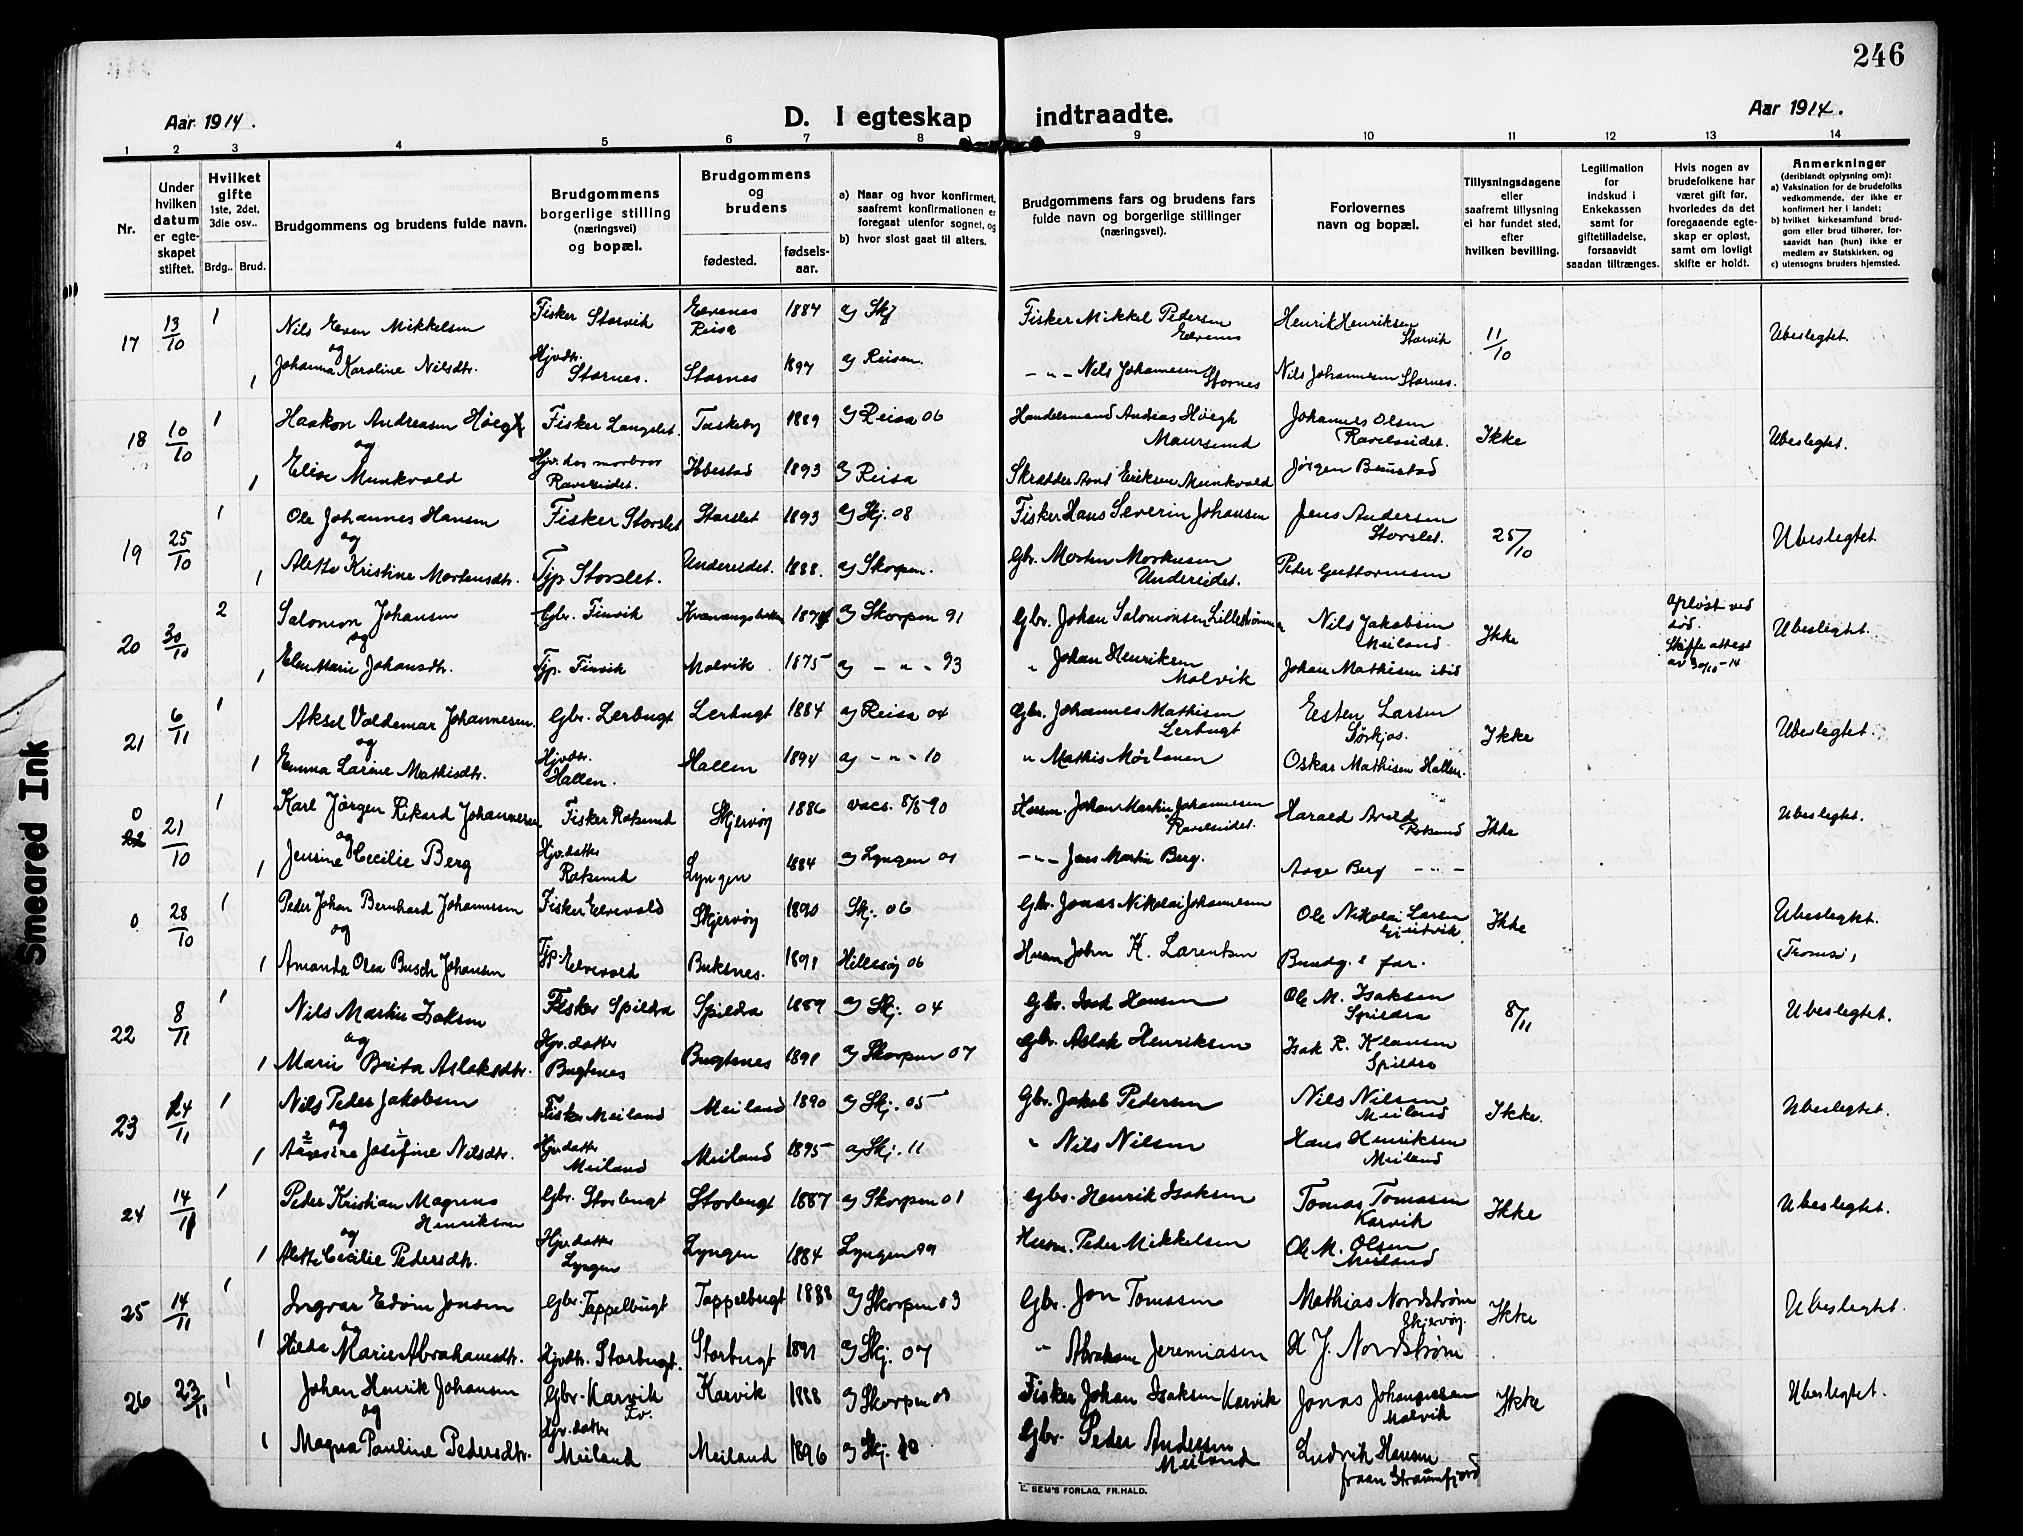 246
Aar 1914.
D. I egteskap indtraadte.
Aar 1914.
1 2 3 4 5 6 7 8 9 10 11 12 13 14
Nr.
Under hvilken datum er egteskapet stiftet.
Hvilket gifte 1ste, 2det, 3die osv..
Brdg.. Brud.
Brudgommens og brudens fulde navn.
Brudgommens borgerlige stilling (næringsvei) og bopæl.
Brudgommens og brudens
fødested.
fødsels-aar.
a) Naar og hvor konfirmert, saafremt konfirmationen er foregaat utenfor sognet, og
b) hvor sidst gaat til alters.
Brudgommens fars og brudens fars fulde navn og borgerlige stillinger (næringsvei).
Forlovernes navn og bopæl.
Tillysningsdagene eller saafremt tillysning ei har fundet sted, efter hvilken bevilling.
Legitimation for indskud i Enkekassen samt for giftetilladelse, forsaavidt saadan tiltrænges.
Hvis nogen av brudefolkene har været gift før, hvorledes da det foregaaende egteskap er opløst, samt om lovligt skifte er holdt.
Anmerkninger (deriblandt oplysning om):
a) Vaksination for de brudefolks vedkommende, der ikke er konfirmert her i landet;
b) hvilket kirkesamfund brudgom eller brud tilhører, forsaavidt han (hun) ikke er medlem av Statskirken, og
c) utensogns bruders hjemsted.
17 13/10 1 Nils Even Mikkelsen Fisker Storvik Elvenes Reisa 1887 a) Skj Fisker Mikkel Pedersen Elvenes Henrik Henriksen Storvik 11/10 Ubeslegtet.
og
1 Johanna Karoline Nilsdtr. Hjvdtr. Stornes. Stornes 1897 a) Reisen. - " - Nils Johannesen Stornes Nils Johannesen Stornes.
18 10/10 1 Haakon Andreasen Høegh Fisker Langslet. Taskeby 1889 a) Reisa 06 Handelsmand Andreas Høegh Maursund Johannes Olsen Ravelseidet. Ikke Ubeslegtet.
og
1 Elise Munkvold Hjv. hos morbror Ravelseidet. Ibbestad 1893 a) Reisa Skrædder Arnt Eriksen Munkvold Jørgen Benstad
19 25/10 1 Ole Johannes Hansen Fisker Storslet Storslet 1893 a) Skj. 08 Fisker Hans Severin Johansen Jens Andersen Storslet. 25/10 Ubeslegtet.
og
1 Alette Kristine Mortensdtr. Tjp Storslet. Undereidet. 1888. a) Skorpen. Gbr. Morten Morkusen Undereidet. Peder Guttormsen
20 30/10 2 Salomon Johansen Gbr. Finvik 187 a) Skorpen 91 Gbr. Johan Salomonsen Nils Jakobsen Meiland Ikke opløst ved død. Skifteattest av 30/10-14 Ubeslegtet.
og
1 Elen Marie Johansdtr. Tjp. Finvik Malvik 1875 a) - " - 93 " Johan Henriksen Malvik Johan Mathisen ibid
21 6/11 1 Aksel Valdemar Johannesen. Gbr. Lerbugt Lerbugt 1884 a) Reisa 04 Gbr. Johannes Mathisen Lerbugt Esten Larsen Sørkjos. Ikke Ubeslegtet.
og
1 Emma Larine Mathisdtr. Hjvdtr. Hallen. Hallen 1894 a) - " - 10 " Mathis Mørlanen Oskar Mathisen Hallen.
0 21/10 1 Karl Jørgen Rikard Johannesen Fisker Rotsund Skjervøy 1886 vacs. 8/8 90 Husm. Johan Martin Johannesen Ravelseidet. Harald Arild Rotsund Ikke Ubeslegtet.
og
1 Jensine Cecilie Berg Hjv.datter Rotsund Lyngen 1884 a) Lyngen 01 - " - Jens Martin Berg. Aage Berg - " -
0 28/10 1 Peder Johan Bernhard Johannesen Fisker Elvevold Skjervøy 1890 Skj. 06 Gbr. Jonas Nikolai Johannesen Ole Nikolai Larsen Ikke Ubeslegtet.
og
1 Amanda Olea Busch Johansen Tjp. Elvevold Buksnes. 1891 Hillesøy 06 Husm John K. Larentsen Brudg.s far. (Tromsø)
22 8/11 1 Nils Martin Isaksen Fisker Spildra Spildra 1889 a) Skj. 04 Gbr. Isak Hansen Ole M. Isaksen Spildra 8/11 Ubeslegtet.
og
1 Marie Brita Aslaksdtr. Hjv.datter Bugtenes Bugtenes 1891 a) Skorpen 07 Gbr. Aslak Henriksen Isak R. Klausen Spildra
23 14/11 1 Nils Peder Jakobsen Fisker Meiland Meiland 1890 a) Skj. 05 Gbr. Jakob Pedersen Nils Nilsen Meiland Ikke. Ubeslegtet.
og
1 Josefine Nilsdtr. Hjv.datter Meiland Meiland 1895 a) Skj. 11 " Nils Nilsen Hans Henriksen Meiland
24 14/11 1 Peder Kristian Magnus Henriksen Gbr. Storbugt Storbugt 1887 a) Skorpen 01 Gbr. Henrik Isaksen Tomas Tomasen Karvik Ikke Ubeslegtet.
og
1 Alette Cecilie Pedersdtr. Hjv.datter Lyngen Lyngen 1884 Lyngen 99 Husm. Peder Mikkelsen Ole M. Olsen Meiland
25 14/11 1 Ingvar Edvin Jonsen Gbr. Tappelbugt Tappelbugt 1888 a) Skorpen 03 Gbr. Jon Tomassen Mathias Nordstrøm Skjervøy. Ikke Ubeslegtet.
og
1 Hilda Marie Abrahamsdtr. Hjvdtr. Storbugt. Storbugt 1891 a) Skj. 07 " Abraham Jeremiasen H J. Nordstrøm
26 23/11 1 Johan Henrik Johansen Gbr. Karvik Karvik 1888 a) Skorpen 03 Fisker Johan Isaksen Karvik Jonas Johannesen Malvik Ikke Ubeslegtet.
og
1 Magna Pauline Pedersdtr. Hjv.datter Meiland Meiland 1896 a) Skj. 10 Gbr. Peder Andersen Meiland Ludvik Hansen fraan Straumfjord
E. SEM'S FORLAG, FR.HALD.
Smeared Ink